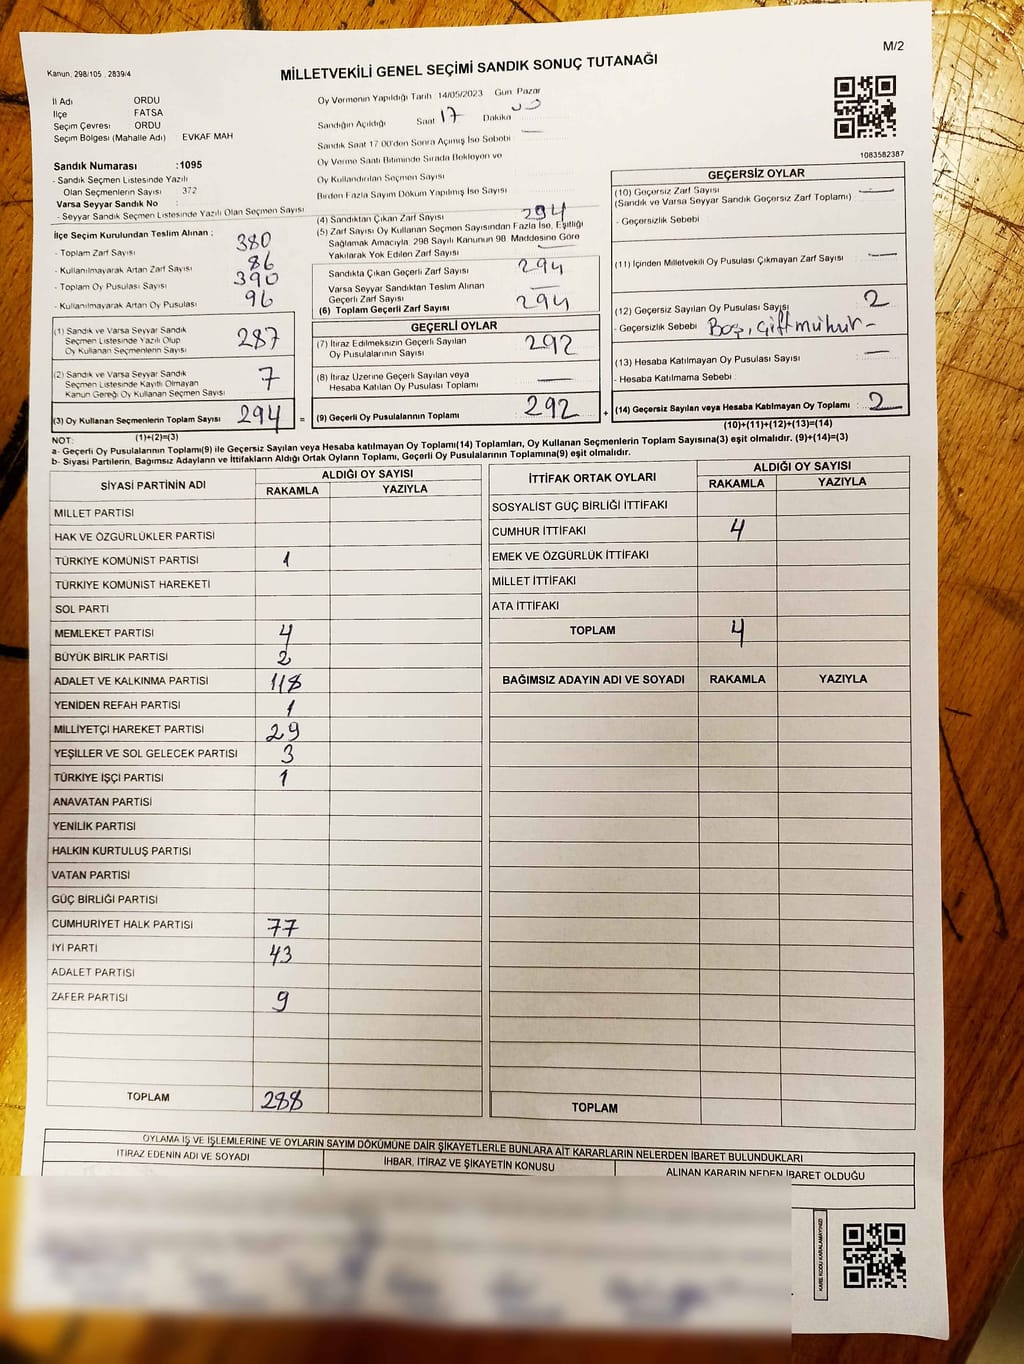 M/2
Kanun, 298/105 , 2839/4
MİLLETVEKİLİ GENEL SEÇİMİ SANDIK SONUÇ TUTANAĞI
İl Adı ORDU
İlçe FATSA
Seçim Çevresi ORDU
Seçim Bölgesi (Mahalle Adı) EVKAF MAH
Sandık Numarası :1095
- Sandık Seçmen Listesinde Yazılı
Olan Seçmenlerin Sayısı : 372
Varsa Seyyar Sandık No :
- Seyyar Sandık Seçmen Listesinde Yazılı Olan Seçmen Sayısı
İlçe Seçim Kurulundan Teslim Alınan ;
- Toplam Zarf Sayısı 380
- Kullanılmayarak Artan Zarf Sayısı 86
- Toplam Oy Pusulası Sayısı 390
- Kullanılmayarak Artan Oy Pusulası 96
(1) Sandık ve Varsa Seyyar Sandık
Seçmen Listesinde Yazılı Olup
Oy Kullanan Seçmenlerin Sayısı 287
(2) Sandık ve Varsa Seyyar Sandık
Seçmen Listesinde Kayıtlı Olmayan
Kanun Gereği Oy Kullanan Seçmen Sayısı 7
(3) Oy Kullanan Seçmenlerin Toplam Sayısı 294 =
(1)+(2)=(3)
Oy Vermenin Yapıldığı Tarih 14/05/2023 Gün Pazar
Sandığın Açıldığı Saat 17 Dakika
Sandık Saat 17.00'den Sonra Açımış İse Sebebi
Oy Verme Saati Bitiminde Sırada Bekleyen ve
Oy Kullandırılan Seçmen Sayısı
Birden Fazla Sayım Döküm Yapılmış İse Sayısı
(4) Sandıktan Çıkan Zarf Sayısı 294
(5) Zarf Sayısı Oy Kullanan Seçmen Sayısından Fazla İse, Eşitliği
Sağlamak Amacıyla, 298 Sayılı Kanunun 98. Maddesine Göre
Yakılarak Yok Edilen Zarf Sayısı
Sandıkta Çıkan Geçerli Zarf Sayısı 294
Varsa Seyyar Sandıktan Teslim Alınan
Geçerli Zarf Sayısı
(6) Toplam Geçerli Zarf Sayısı 294
GEÇERLİ OYLAR
(7) İtiraz Edilmeksizin Geçerli Sayılan
Oy Pusulalarının Sayısı 292
(8) İtiraz Üzerine Geçerli Sayılan veya
Hesaba Katılan Oy Pusulası Toplamı
(9) Geçerli Oy Pusulalarının Toplamı : 292 +
1083582387
GEÇERSİZ OYLAR
(10) Geçersiz Zarf Sayısı
(Sandık ve Varsa Seyyar Sandık Geçersiz Zarf Toplamı)
- Geçersizlik Sebebi
(11) İçinden Milletvekili Oy Pusulası Çıkmayan Zarf Sayısı
(12) Geçersiz Sayılan Oy Pusulası Sayısı 2
- Geçersizlik Sebebi Boş, çift mühür -
(13) Hesaba Katılmayan Oy Pusulası Sayısı
- Hesaba Katılmama Sebebi
(14) Geçersiz Sayılan veya Hesaba Katılmayan Oy Toplamı : 2
(10)+(11)+(12)+(13)=(14)
NOT:
a- Geçerli Oy Pusulalarının Toplamı(9) ile Geçersiz Sayılan veya Hesaba katılmayan Oy Toplamı(14) Toplamları, Oy Kullanan Seçmenlerin Toplam Sayısına(3) eşit olmalıdır. (9)+(14)=(3)
b- Siyasi Partilerin, Bağımsız Adayların ve İttifakların Aldığı Ortak Oyların Toplamı, Geçerli Oy Pusulalarının Toplamına(9) eşit olmalıdır.
SİYASİ PARTİNİN ADI ALDIĞI OY SAYISI
RAKAMLA YAZIYLA
MİLLET PARTİSİ
HAK VE ÖZGÜRLÜKLER PARTİSİ
TÜRKİYE KOMÜNİST PARTİSİ 1
TÜRKİYE KOMÜNİST HAREKETİ
SOL PARTİ
MEMLEKET PARTİSİ 4
BÜYÜK BİRLİK PARTİSİ 2
ADALET VE KALKINMA PARTİSİ 118
YENİDEN REFAH PARTİSİ 1
MİLLİYETÇİ HAREKET PARTİSİ 29
YEŞİLLER VE SOL GELECEK PARTİSİ 3
TÜRKİYE İŞÇİ PARTİSİ 1
ANAVATAN PARTİSİ
YENİLİK PARTİSİ
HALKIN KURTULUŞ PARTİSİ
VATAN PARTİSİ
GÜÇ BİRLİĞİ PARTİSİ
CUMHURİYET HALK PARTİSİ 77
İYİ PARTİ 43
ADALET PARTİSİ
ZAFER PARTİSİ 9
TOPLAM 288
İTTİFAK ORTAK OYLARI ALDIĞI OY SAYISI
RAKAMLA YAZIYLA
SOSYALİST GÜÇ BİRLİĞİ İTTİFAKI
CUMHUR İTTİFAKI 4
EMEK VE ÖZGÜRLÜK İTTİFAKI
MİLLET İTTİFAKI
ATA İTTİFAKI
TOPLAM 4
BAĞIMSIZ ADAYIN ADI VE SOYADI RAKAMLA YAZIYLA
TOPLAM
OYLAMA İŞ VE İŞLEMLERİNE VE OYLARIN SAYIM DÖKÜMÜNE DAİR ŞİKAYETLERLE BUNLARA AİT KARARLARIN NELERDEN İBARET BULUNDUKLARI
İTİRAZ EDENİN ADI VE SOYADI İHBAR, İTİRAZ VE ŞİKAYETİN KONUSU ALINAN KARARIN NEDEN İBARET OLDUĞU
KARE KODU KARALAMAYINIZ!